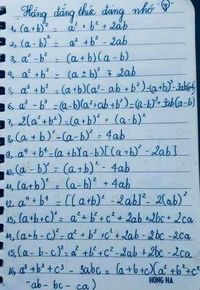 Hằng đẳng thức đáng nhớ
1, (a+b)² = a² + b² + 2ab
2, (a-b)² = a² + b² - 2ab
3, a² - b² = (a+b)(a-b)
4, a² + b² = (a±b)² ∓ 2ab
5, a³ + b³ = (a+b)(a² - ab + b²) = (a+b)³ - 3ab(a+b)
6, a³ - b³ = (a-b)(a² + ab + b²) = (a-b)³ + 3ab(a-b)
7, 2(a² + b²) = (a+b)² + (a-b)²
8, (a+b)² - (a-b)² = 4ab
9, a⁴ + b⁴ =
10, (a-b)² = (a+b)² - 4ab
11, (a+b)² = (a-b)² + 4ab
12, a⁴ + b⁴ = [(a+b)² - 2ab]² - 2(ab)²
13, (a+b+c)² = a² + b² + c² + 2ab + 2bc + 2ca
14, (a+b-c)² = a² + b² + c² + 2ab - 2bc - 2ca
15, (a-b-c)² = a² + b² + c² - 2ab + 2bc - 2ca
16, a³ + b³ + c³ - 3abc = (a+b+c)(a² + b² + c²
- ab - bc - ca)
HỒNG HÀ